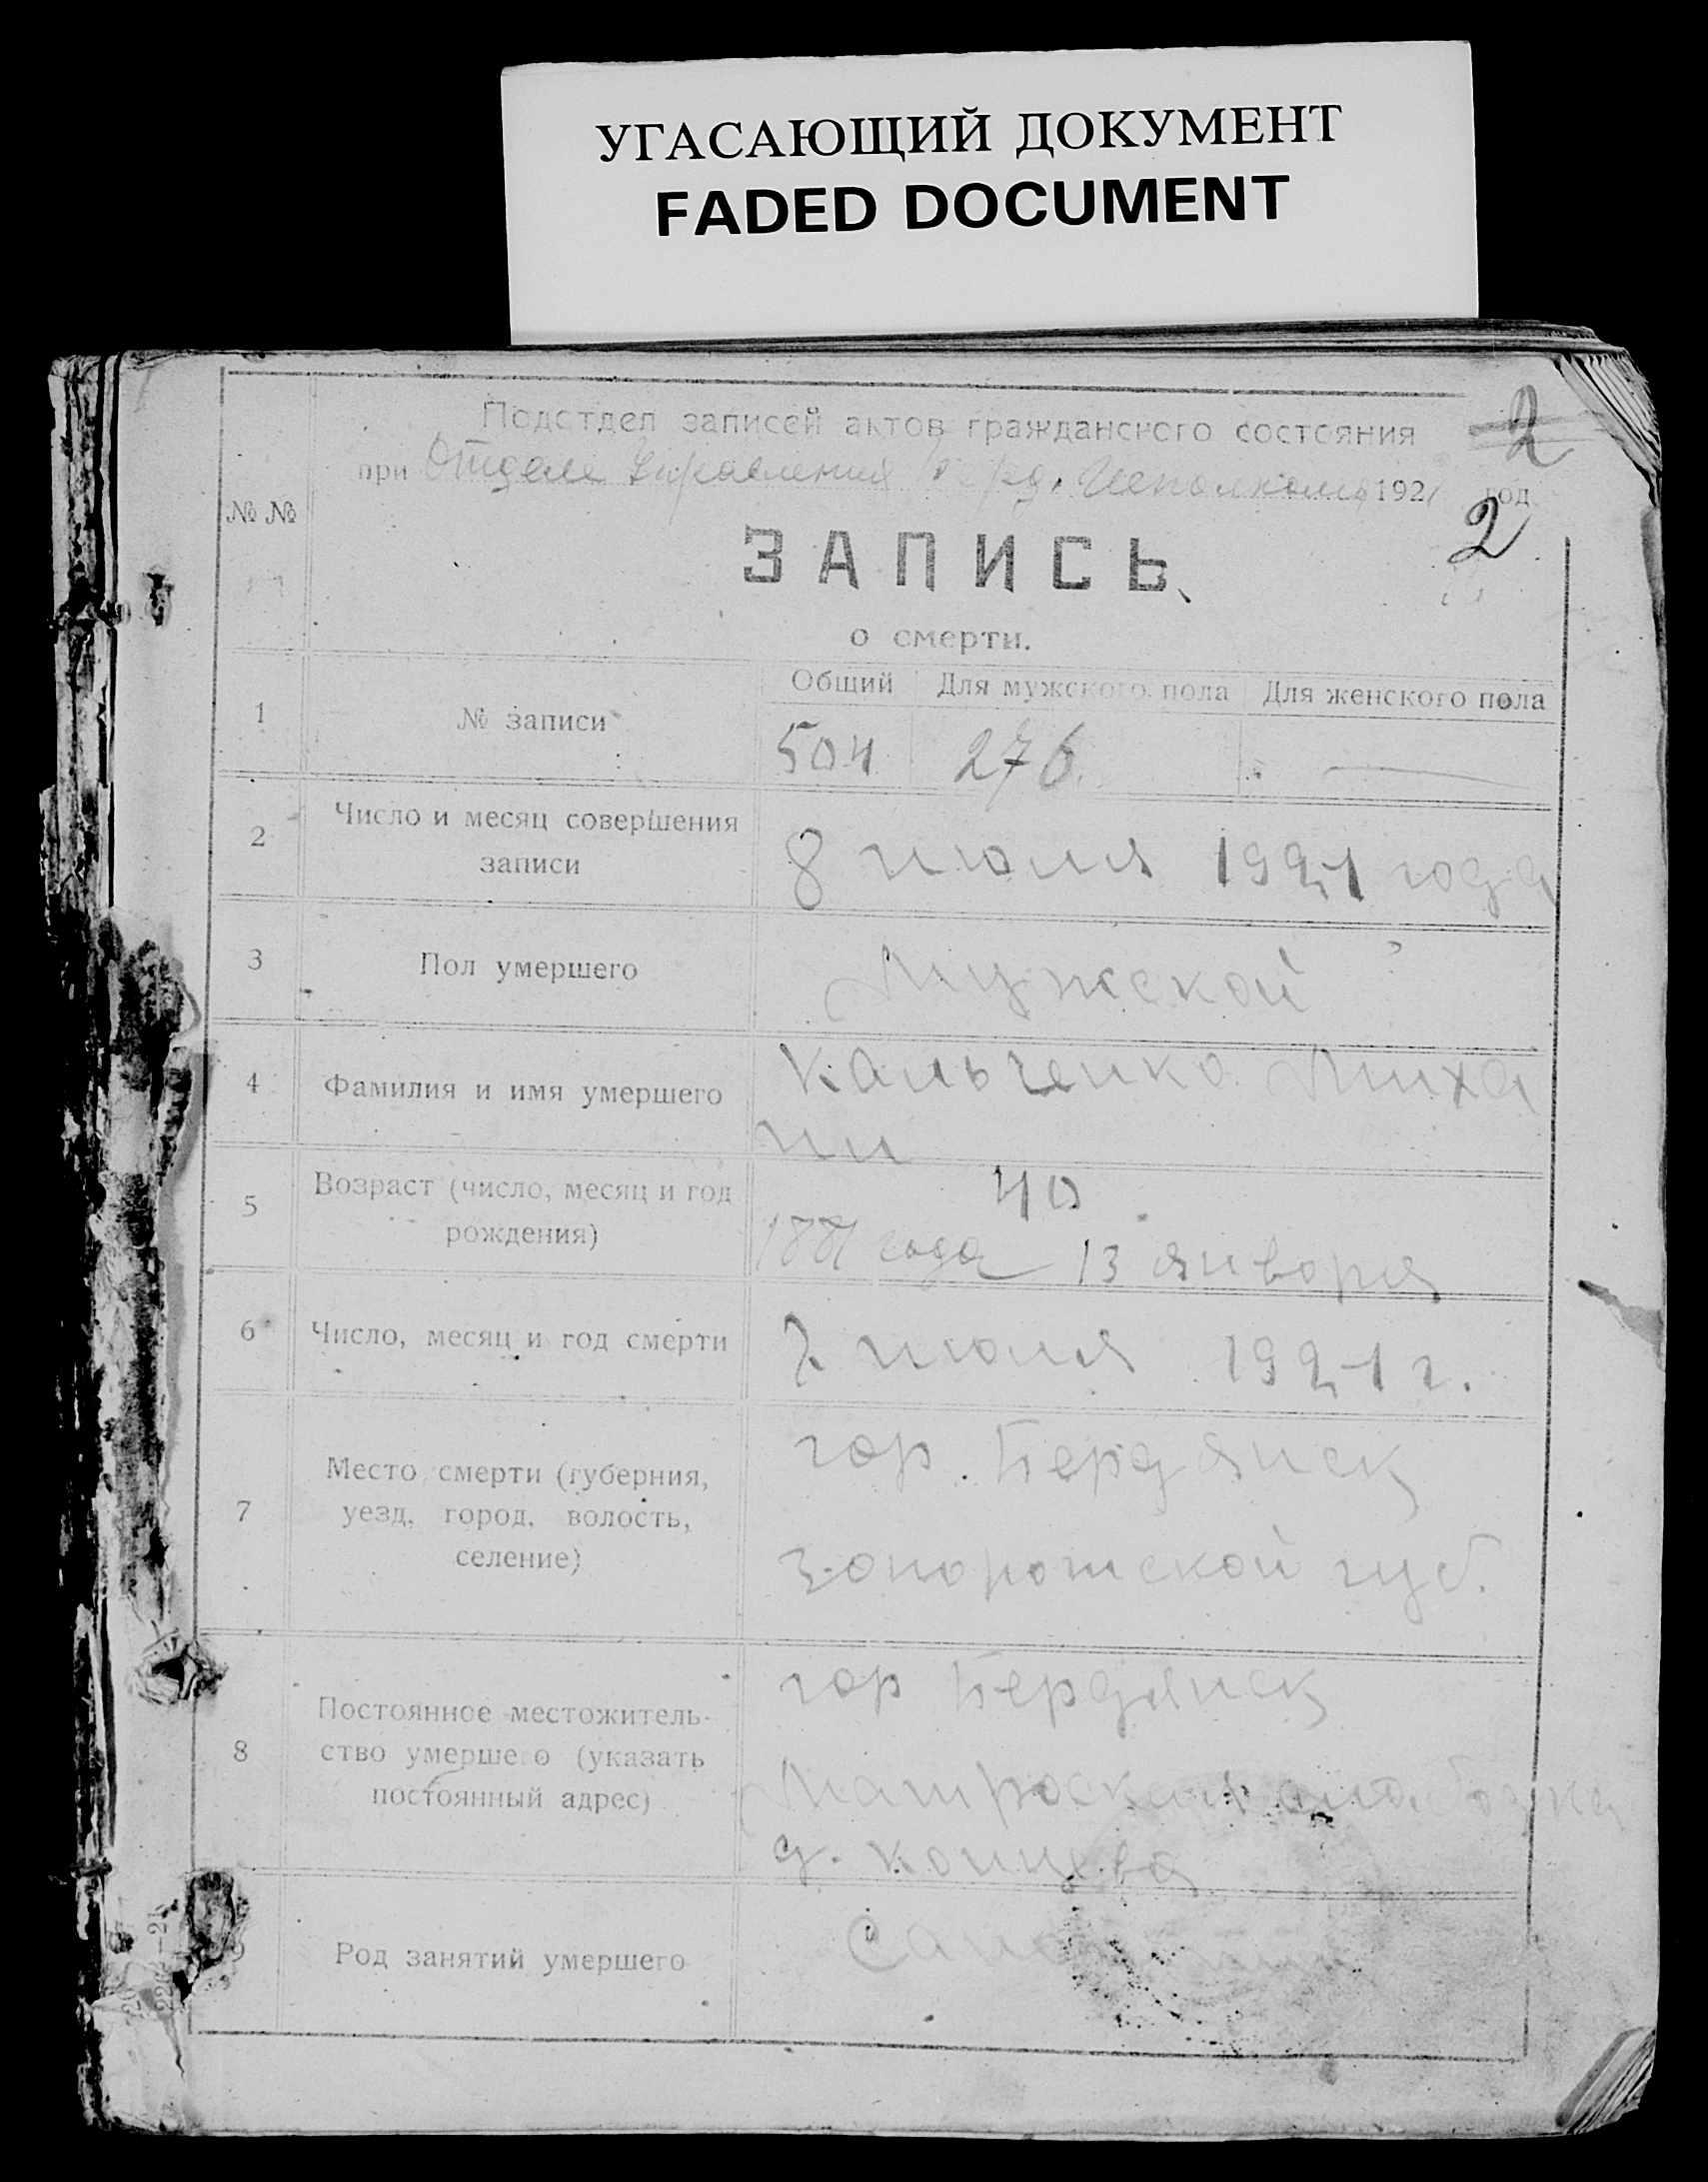 УГАСАЮЩИЙ ДОКУМЕНТ
FADED DOCUMENT
2
Подотдел записей актов гражданского состояния
при Отделе Управления Берд. Исполкома 1921 год
2
№ №
ЗАПИСЬ
о смерти.
Общий Для мужского пола Для женского пола
1 № записи 504 276 —
2 Число и месяц совершения
записи
8 июля 1921 года
3 Пол умершего Мужской
4 Фамилия и имя умершего Кальченко Миха
ил
5 Возраст (число, месяц и год
рождения)
40
1881 года 13 января
6 Число, месяц и год смерти 7 июля 1921 г.
7 Место смерти (губерния,
уезд, город, волость,
селение)
гор. Бердянск
Запорожской губ.
8 Постоянное местожитель-
ство умершего (указать
постоянный адрес)
гор Бердянск
Матросская
д. Концева
9 Род занятий умершего